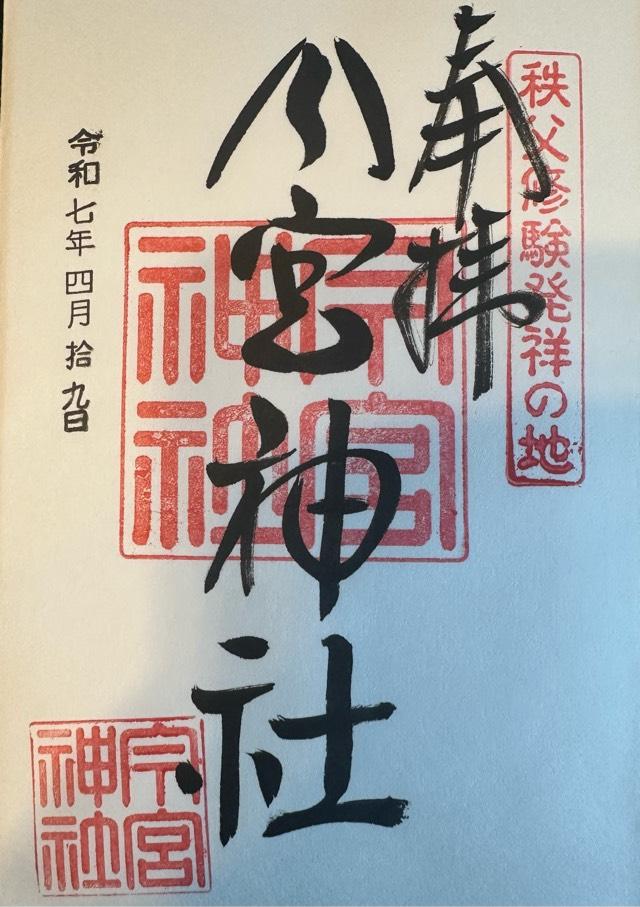 秩父修験発祥の地
奉拝
今宮神社
今宮神社
令和七年四月拾九日
今宮神社